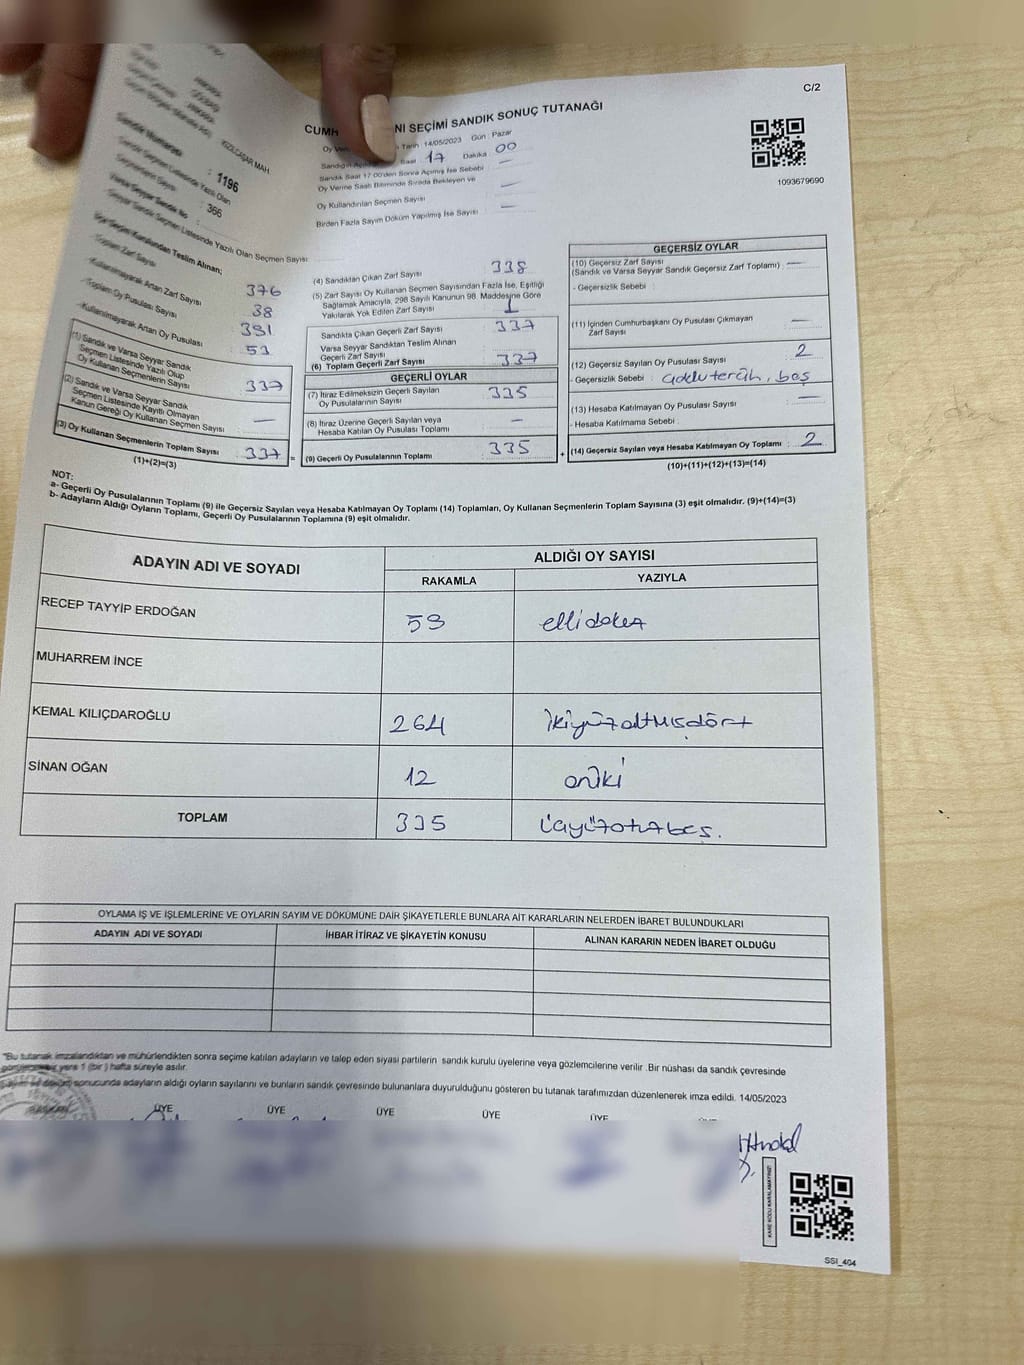 C/2
CUMH NI SEÇİMİ SANDIK SONUÇ TUTANAĞI
Oy Ve Tarih : 14/05/2023 Gün : Pazar
Sandığın Açıl Saat 17 Dakika 00
Sandık Saat 17:00'den Sonra Açılmış İse Sebebi —
Oy Verme Saati Bitiminde Sırada Bekleyen ve
Oy Kullandırılan Seçmen Sayısı —
Birden Fazla Sayım Döküm Yapılmış İse Sayısı —
1093679690
KIZILCAŞAR MAH.
Sandık Numarası : 1196
Sandık Seçmen Listesinde Yazılı Olan
Seçmenlerin Sayısı : 366
Varsa Seyyar Sandık No :
Seyyar Sandık Seçmen Listesinde Yazılı Olan Seçmen Sayısı :
İlçe Seçim Kurulundan Teslim Alınan;
Toplam Zarf Sayısı 376
Kullanılmayarak Artan Zarf Sayısı 38
Toplam Oy Pusulası Sayısı 391
Kullanılmayarak Artan Oy Pusulası 53
(1) Sandık ve Varsa Seyyar Sandık
Seçmen Listesinde Yazılı Olup
Oy Kullanan Seçmenlerin Sayısı 337
(2) Sandık ve Varsa Seyyar Sandık
Seçmen Listesinde Kayıtlı Olmayan
Kanun Gereği Oy Kullanan Seçmen Sayısı —
(3) Oy Kullanan Seçmenlerin Toplam Sayısı 337 =
(1)+(2)=(3)
(4) Sandıktan Çıkan Zarf Sayısı 338
(5) Zarf Sayısı Oy Kullanan Seçmen Sayısından Fazla İse, Eşitliği
Sağlamak Amacıyla, 298 Sayılı Kanunun 98. Maddesine Göre
Yakılarak Yok Edilen Zarf Sayısı 1
Sandıkta Çıkan Geçerli Zarf Sayısı 337
Varsa Seyyar Sandıktan Teslim Alınan
Geçerli Zarf Sayısı
(6) Toplam Geçerli Zarf Sayısı 337
GEÇERLİ OYLAR
(7) İtiraz Edilmeksizin Geçerli Sayılan
Oy Pusulalarının Sayısı 335
(8) İtiraz Üzerine Geçerli Sayılan veya
Hesaba Katılan Oy Pusulası Toplamı —
(9) Geçerli Oy Pusulalarının Toplamı 335 +
GEÇERSİZ OYLAR
(10) Geçersiz Zarf Sayısı
(Sandık ve Varsa Seyyar Sandık Geçersiz Zarf Toplamı) —
- Geçersizlik Sebebi :
(11) İçinden Cumhurbaşkanı Oy Pusulası Çıkmayan
Zarf Sayısı —
(12) Geçersiz Sayılan Oy Pusulası Sayısı 2
- Geçersizlik Sebebi : boş
(13) Hesaba Katılmayan Oy Pusulası Sayısı —
- Hesaba Katılmama Sebebi :
(14) Geçersiz Sayılan veya Hesaba Katılmayan Oy Toplamı : 2
(10)+(11)+(12)+(13)=(14)
NOT:
a- Geçerli Oy Pusulalarının Toplamı (9) ile Geçersiz Sayılan veya Hesaba Katılmayan Oy Toplamı (14) Toplamları, Oy Kullanan Seçmenlerin Toplam Sayısına (3) eşit olmalıdır. (9)+(14)=(3)
b- Adayların Aldığı Oyların Toplamı, Geçerli Oy Pusulalarının Toplamına (9) eşit olmalıdır.
ADAYIN ADI VE SOYADI ALDIĞI OY SAYISI
RAKAMLA YAZIYLA
RECEP TAYYİP ERDOĞAN 59 ellidokuz
MUHARREM İNCE
KEMAL KILIÇDAROĞLU 264 ikiyüzaltmışdört
SİNAN OĞAN 12 oniki
TOPLAM 335 üçyüzotuzbeş.
OYLAMA İŞ VE İŞLEMLERİNE VE OYLARIN SAYIM VE DÖKÜMÜNE DAİR ŞİKAYETLERLE BUNLARA AİT KARARLARIN NELERDEN İBARET BULUNDUKLARI
ADAYIN ADI VE SOYADI İHBAR İTİRAZ VE ŞİKAYETİN KONUSU ALINAN KARARIN NEDEN İBARET OLDUĞU
"Bu tutanak imzalandıktan ve mühürlendikten sonra seçime katılan adayların ve talep eden siyasi partilerin sandık kurulu üyelerine veya gözlemcilerine verilir .Bir nüshası da sandık çevresinde
yere 1 (bir ) hafta süreyle asılır.
sonucunda adayların aldığı oyların sayılarını ve bunların sandık çevresinde bulunanlara duyurulduğunu gösteren bu tutanak tarafımızdan düzenlenerek imza edildi. 14/05/2023
BAŞKAN ÜYE ÜYE ÜYE ÜYE ÜYE
KARE KODU KARALAMAYINIZ!
SSI_404